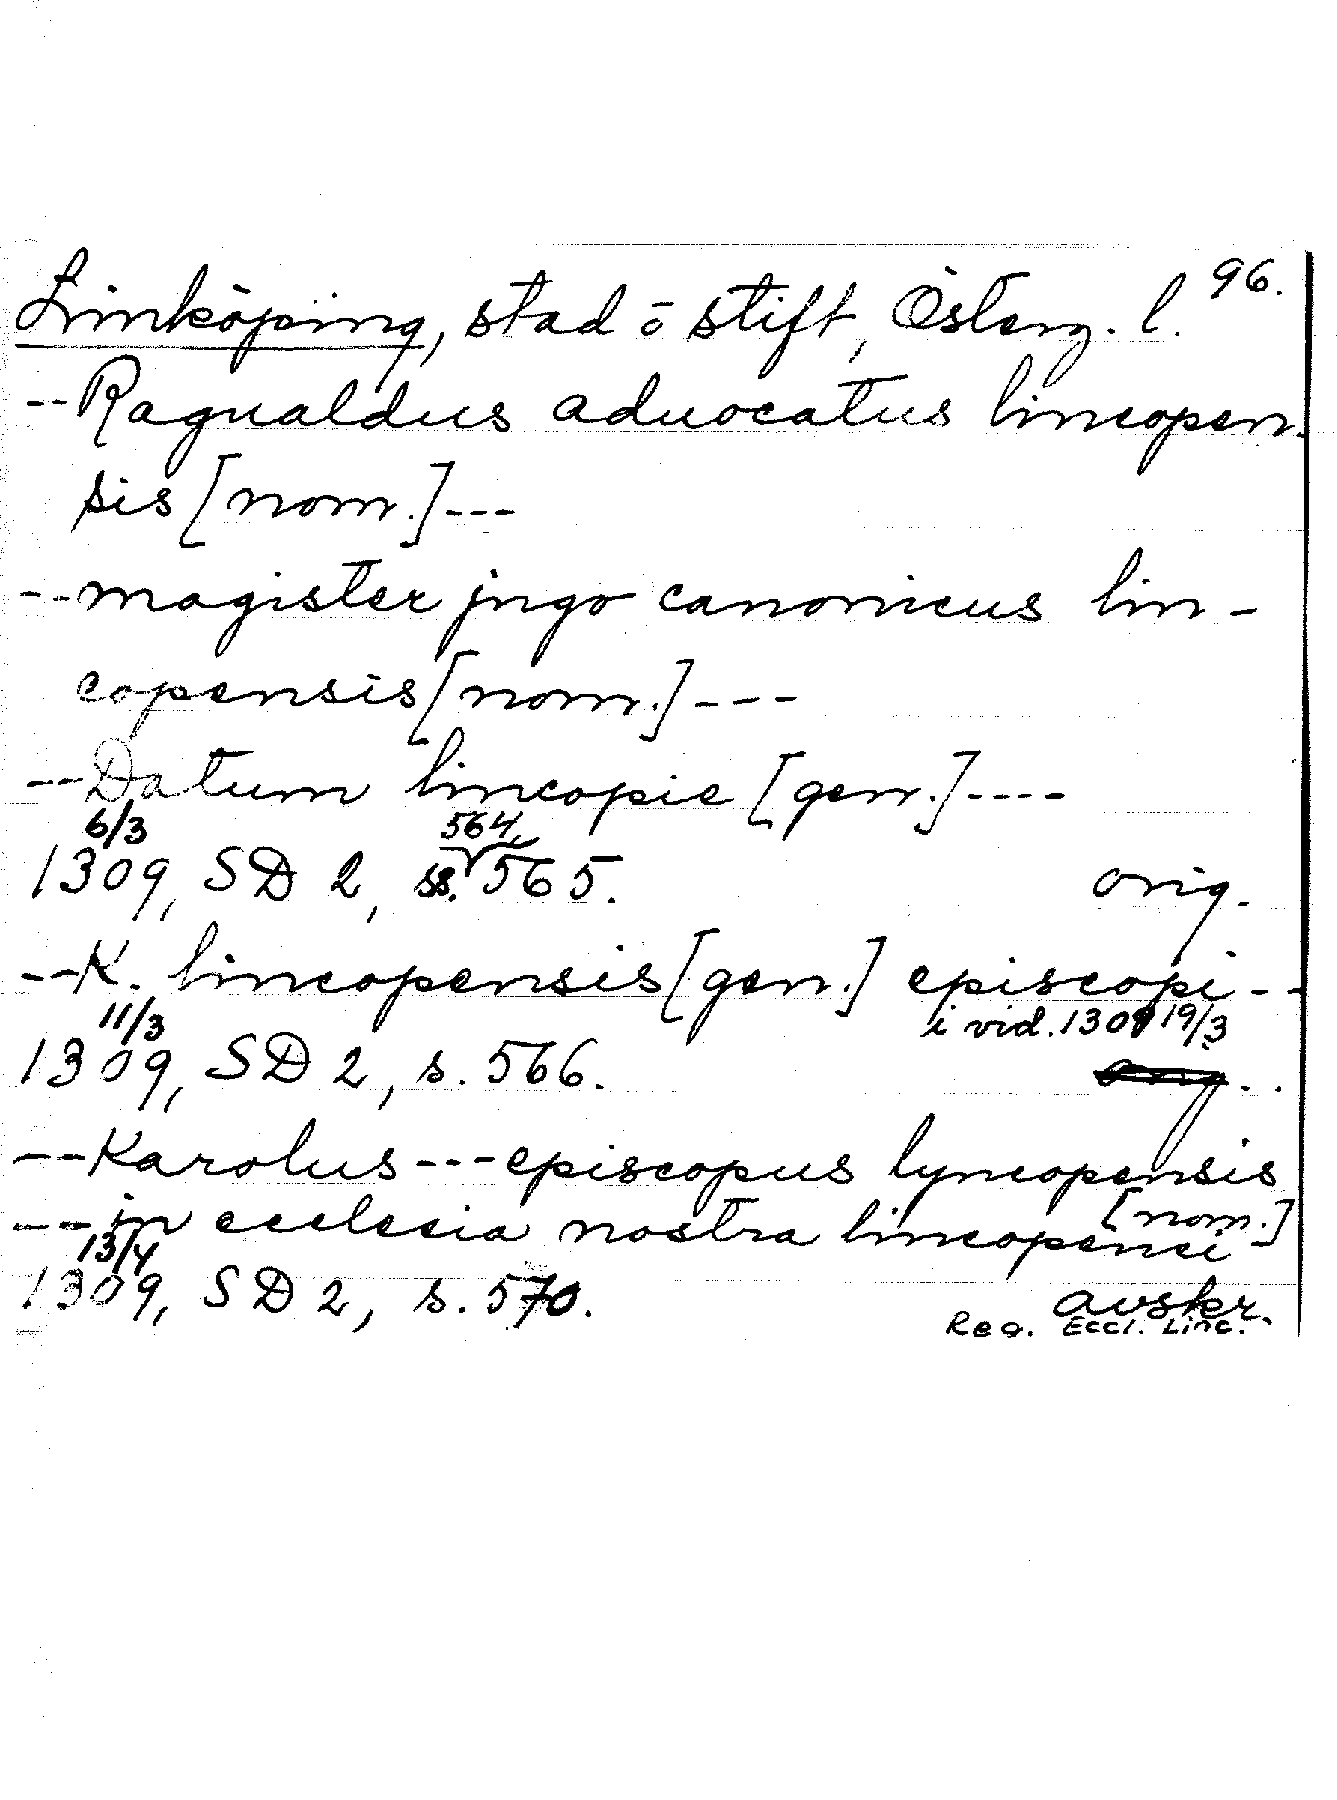 96.
Linköping, stad o stift, Österg. l.
--Ragualdus aduocatus lincopen-
sis [nom.]---
--magister jngo canonicus lin-
copensis [nom.]---
--Datum lincopie [gen.]----
6/3 564,
1309, SD 2, ss. 565. orig.
--K. lincopensis [gen.] episcopi--
11/3 i vid. 1309 19/3
1309, SD 2, s. 566. orig.
--Karolus---episcopus lyncopensis
[nom.]
---in ecclesia nostra lincopensi-
13/4
1309, SD 2, s. 570. avskr.
Reg. Eccl. Linc.